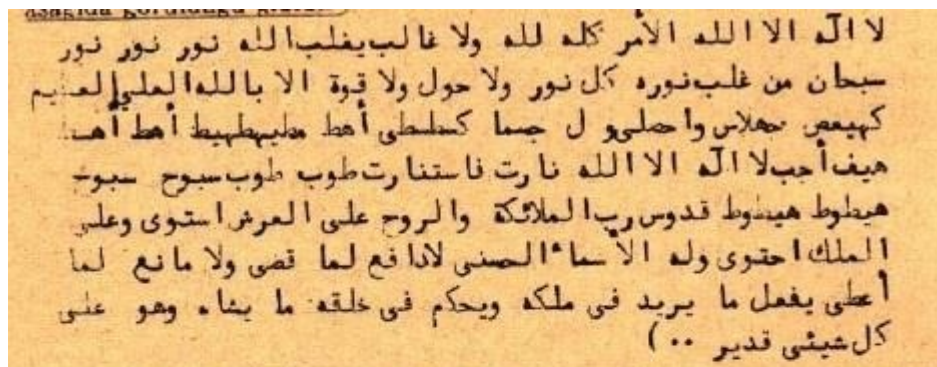 aşağıda görüldüğü gibi
لا اله الا الله الأمر كله لله ولا غالب يغلب الله نور نور نور
سبحان من غلب نوره كل نور ولا حول ولا قوة الا بالله العلي العظيم
كهيعص ل أهط أهط
هيف أجب لا اله الا الله نارت فاستنارت طوب طوب سبوح سبوح
هيطوط هيطوط قدوس رب الملائكة والروح على العرش استوى وعلى
الملك احتوى وله الأسماء الحسنى لادافع لما قضى ولا مانع لما
أعطى يفعل ما يريد فى ملكه ويحكم فى خلقه ما يشاء وهو على
كل شيئى قدير ٠٠ )